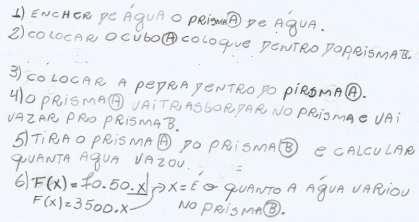 1) ENCHER DE ÁGUA O PRISMA Ⓐ DE ÁGUA.
2) COLOCAR O CUBO Ⓐ COLOQUE DENTRO DO PRISMA B.
3) COLOCAR A PEDRA DENTRO DO PIRSMA Ⓐ.
4) O PRISMA Ⓐ VAI TRASBORDAR NO PRISMA E VAI
VAZAR PRO PRISMA B.
5) TIRA O PRISMA Ⓐ DO PRISMA Ⓑ E CALCULAR
QUANTA AGUA VAZOU.
6) F(X)=70.50.X → X=É O QUANTO A ÁGUA VARIOU
F(X)=3500.X NO PRISMA Ⓑ.